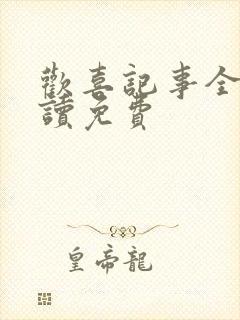 歡喜記事全
讀免費
皇帝龍